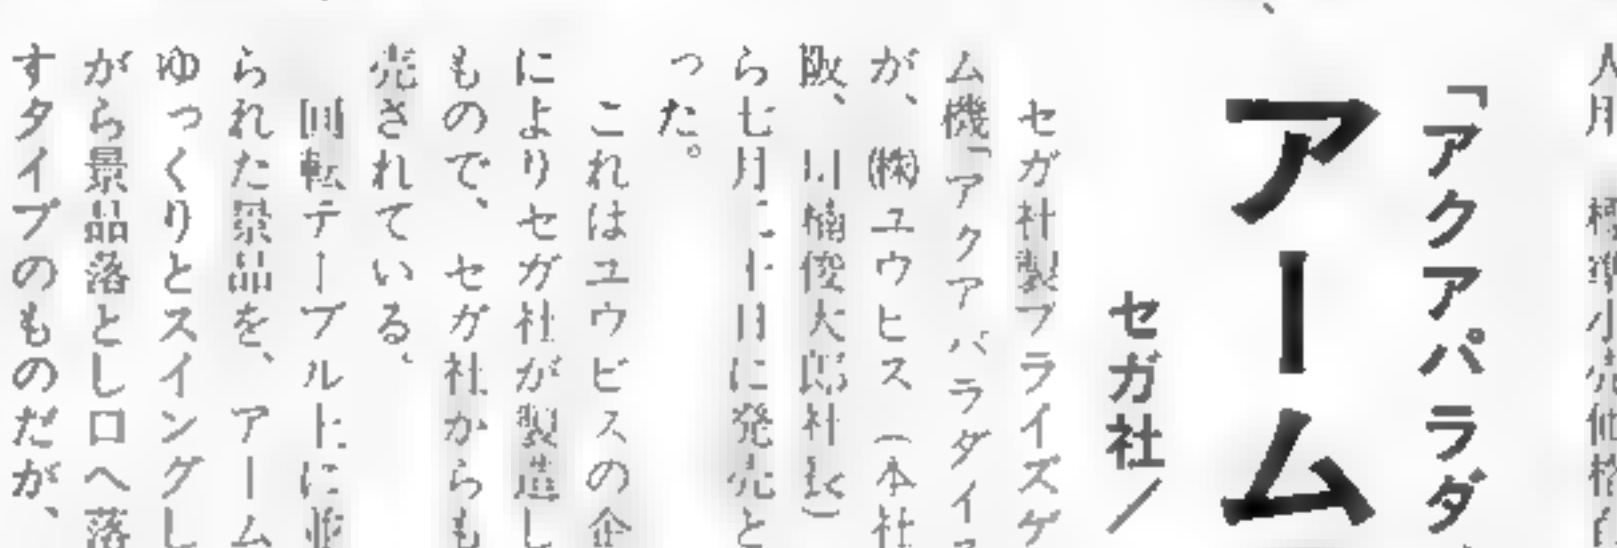 「アクアパラダ
アーム
セガ社／
セガ社製プライズゲ
ム機「アクアパラダイス
が、㈱ユウビス（本社
阪、川楠俊太郎社長）
ら七月二十日に発売と
った。
これはユウビスの企
によりセガ社が製造し
もので、セガ社からも
売されている。
回転テーブル上に並
られた景品を、アーム
ゆっくりとスイングし
がら景品落とし口へ落
すタイプのものだが、